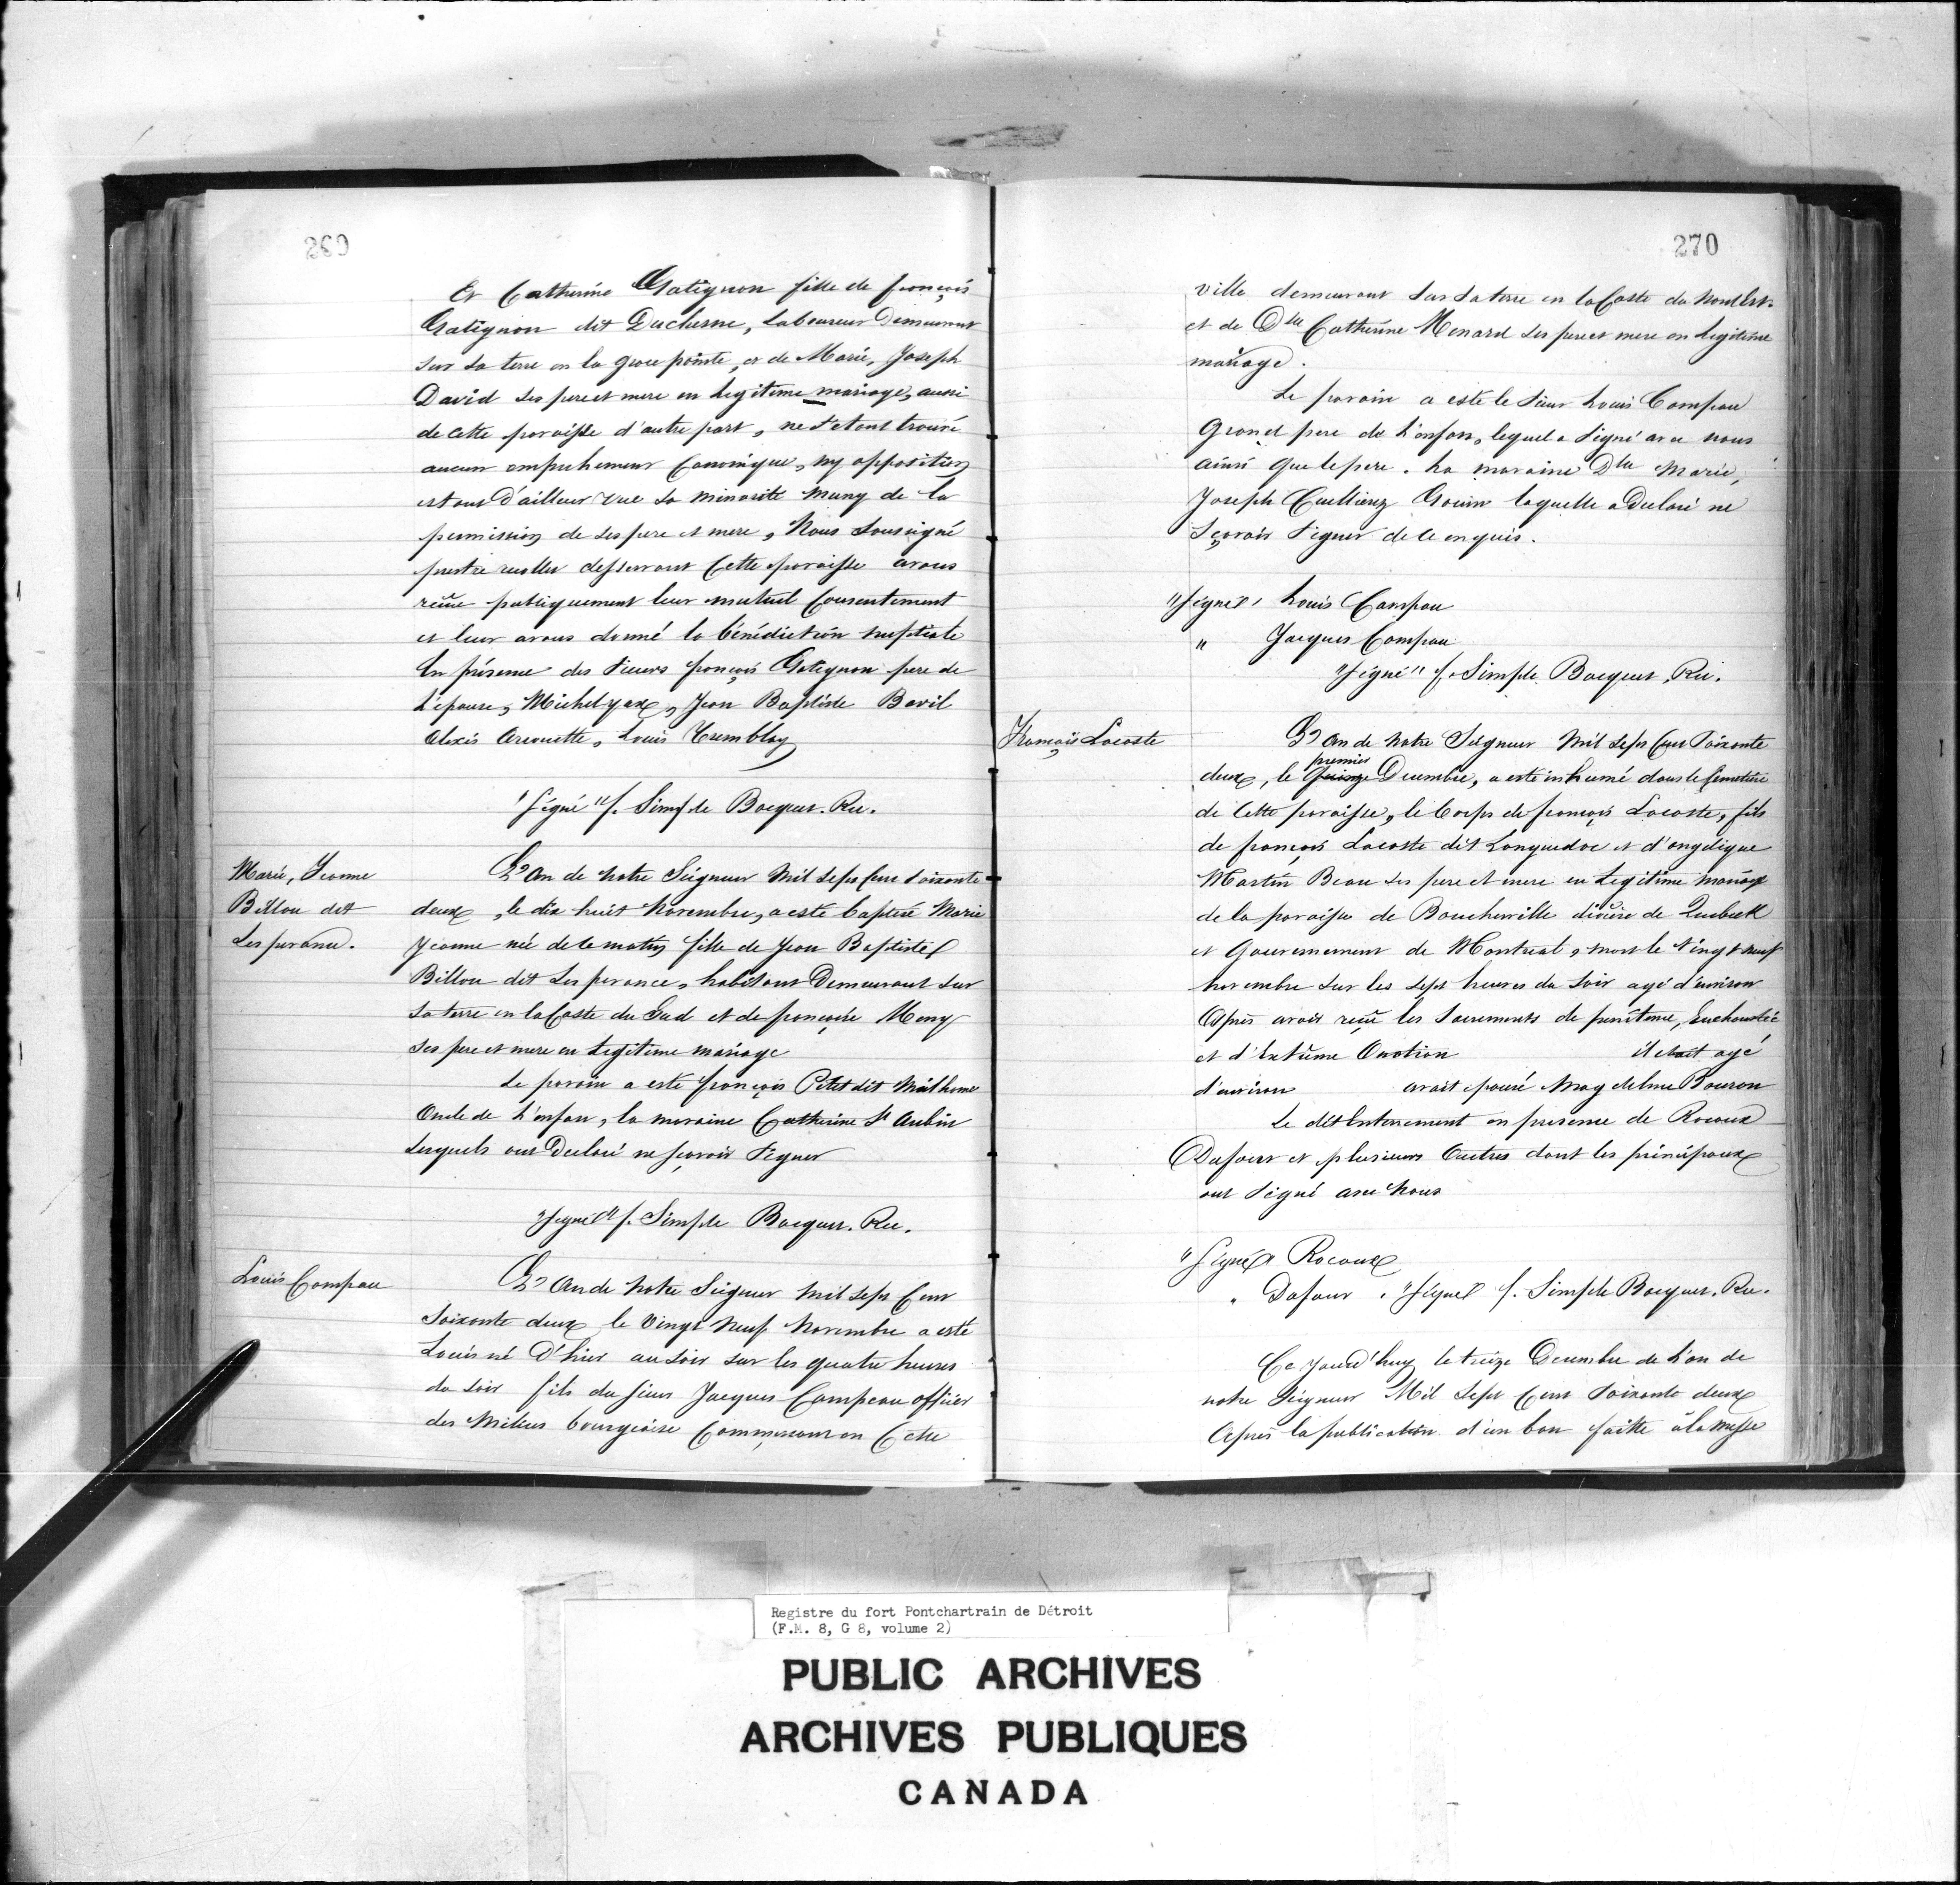 269
Et Catherine Gatignon fille de françois
Gatignon dit Duchesne, Laboureur Demeurant
sur sa terre en la grace pointe, et de Marie, Joseph
David ses pere et mere en legitime mariage, aussi
de cette paroisse d'autre part, ne s'etant trouvé
aucun empechement Canonique, ny opposition
etant d'ailleur vue sa minorité muny de la
permission de ses pere et mere, Nous Soussigné
prestre recollet desservant Cette paroisse avons
reçue publiquement leur mutuel Consentement
et leur avons donné la bénédiction nuptiale
En présence des Sieurs françois Gatignon pere de
L'épouse, Michel yax, Jean Baptiste Baril
Alexis Greouette, Louis Tremblay
"Signé" f. Simple Bocquet. Rec.
Marie, Jeanne
Billou dit
Lesperance.
L'An de notre Seigneur Mil sept Cent soixante
deux, le dix huit Novembre, a esté baptisé Marie
Jeanne née de ce matin fille de Jean Baptiste
Billou dit Lesperance, habitant Demeurant sur
sa terre en la Coste du Sud et de françoise Meny
ses pere et mere en Legitime mariage
Le parain a esté françois Petit dit Mailhome
Oncle de L'enfan, la maraine Catherine St Aubin
Lesquels ont Declaré ne sçavoir Signer
"Signé" f. Simple Bocquet. Rec.
Louis Campau
L'An de notre Seigneur Mil Sept Cent
Soixante deux le Vingt Neuf Novembre a esté
Louis né D'hier au soir sur les quatre heures
du soir fils du sieur Jacques Campeau officier
des Milices bourgeoise Commerceant en Cette
270
ville demeurant sur sa terre en la Coste du Nord Est.
et de Dlle Catherine Menard ses pere et mere en Legitime
mariage.
Le parain a esté le Sieur Louis Campau
Grand pere de L'enfan, lequel a Signé avec nous
ainsi que le pere. La maraine Dlle Marie,
Joseph Cuillierez Gouin laquelle a Declaré ne
Sçavoir Signer de ce enquis.
"Signé" Louis Campau
" Jacques Campau
"Signé" f. Simple Bocquet, Rec.
François Lacoste
L'An de notre Seigneur Mil Sept Cent Soixante
premier
deux, le Quinze Decembre, a esté inhumé dans le Cemetiere
de Cette paroisse, le Corps de françois Lacoste, fils
de françois Lacoste dit Languedoc et d'angelique
Martin Beau ses pere et mere en Legitime mariage
de la paroisse de Boucherville diocèse de Quebeck
et Gouvernement de Montreal, mort le Vingt neuf
Novembre sur les sept heures du soir agé d'environ
Après avoir reçu les Sacrements de penitence, Eucharistie
et d'Extrême Onction il etait agé
d'environ avait épousé Magdeleine Bouron
Le dit Enterrement en presence de Rocoux
Dufour et plusieurs Autres dont les principaux
ont Signé avec Nous
"Signé" Rocoux
" Dufour. "Signé" f. Simple Bocquet. Rec.
Ce Jourd'huy le treize Decembre de L'an de
notre Seigneur Mil Sept Cent Soixante deux
Après la publication d'un ban faitte à la messe
Registre du fort Pontchartrain de Détroit
(F.M. 8, G 8, volume 2)
PUBLIC ARCHIVES
ARCHIVES PUBLIQUES
CANADA